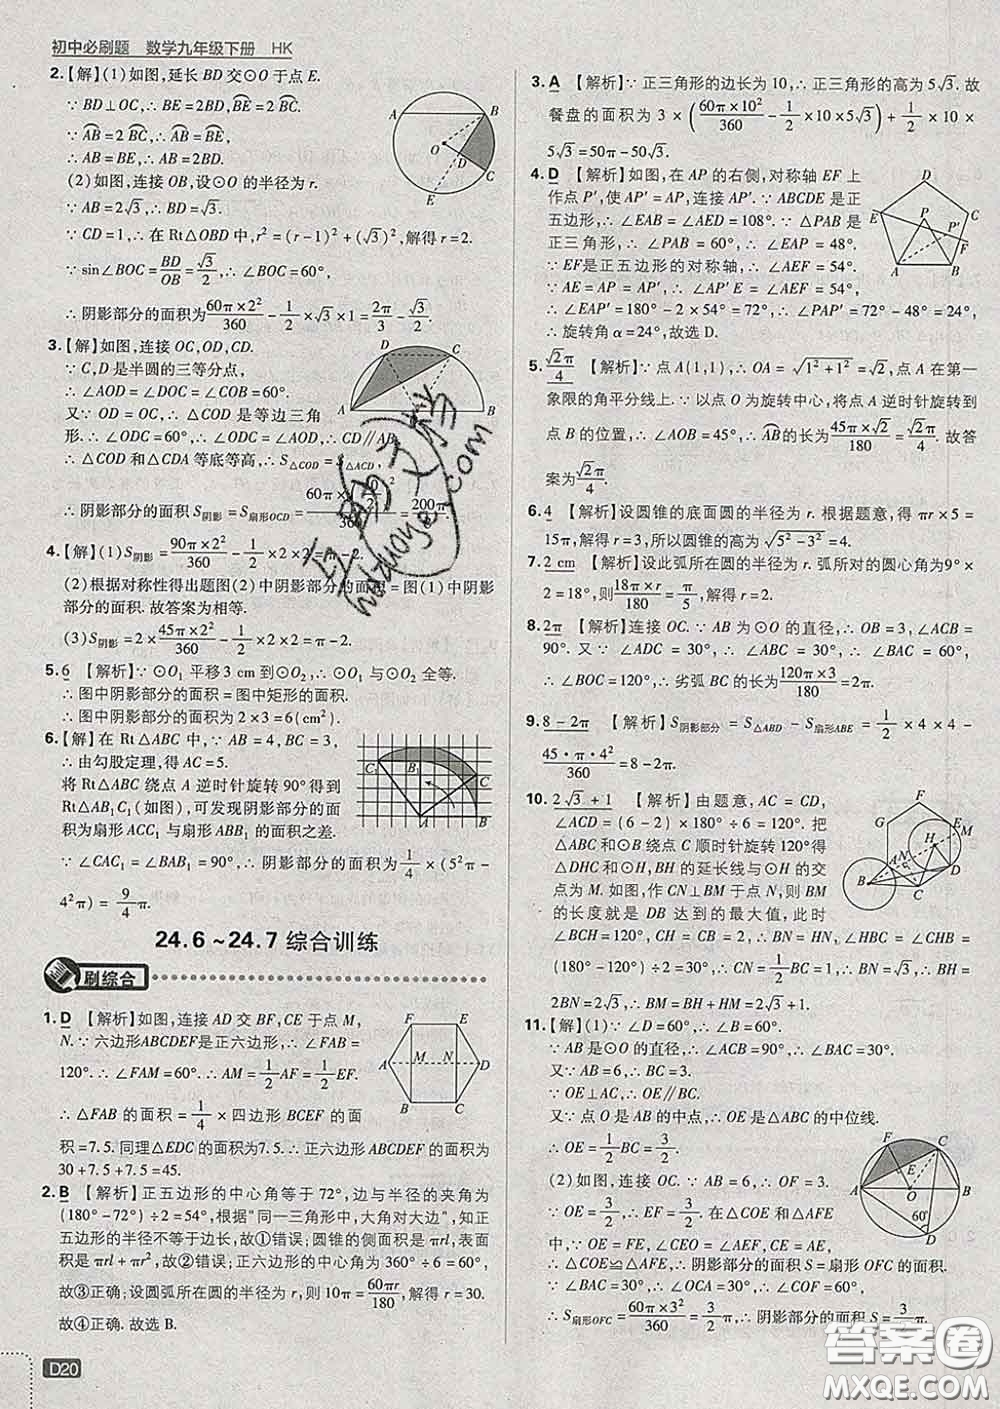 初中必刷题 数学九年级下册 HK
2.【解】(1)如图,延长BD交⊙O于点E.
∵ BD⊥OC,∴ BE=2BD,BE=2BC.
∵ AB=2BC,∴ AB=BE,
∴ AB=BE,∴ AB=2BD.
(2)如图,连接OB,设⊙O的半径为r.
∵ AB=2√3,∴ BD=√3.
∵ CD=1,∴ 在Rt△OBD中,r²=(r-1)²+(√3)²,解得r=2.
∵ sin∠BOC=BD/OB=√3/2,∴ ∠BOC=60°,
∴ 阴影部分的面积为60π×2²/360-1/2×√3×1=2π/3-√3/2.
3.【解】如图,连接OC,OD,CD.
∵ C,D是半圆的三等分点,
∴ ∠AOD=∠DOC=∠COB=60°.
又∵ OD=OC,∴ △COD是等边三角
形.∴ ∠ODC=60°,∴ ∠ODC=∠AOD,∴ CD∥AB,
∴ △COD和△CDA等底等高,∴ S△COD=S△ACD,
∴ 阴影部分的面积S阴影=S扇形OCD=
4.【解】(1)S阴影=90π×2²/360-1/2×2×2=π-2.
(2)根据对称性得出题图(2)中阴影部分的面积=图(1)中阴影
部分的面积.故答案为相等.
(3)S阴影=2×45π×2²/360-1/2×2×2=π-2.
5.6 【解析】∵ ⊙O₁平移3 cm到⊙O₂,∴ ⊙O₁与⊙O₂全等.
∴ 图中阴影部分的面积=图中矩形的面积.
∴ 图中阴影部分的面积为2×3=6(cm²).
6.【解】在Rt△ABC中,∵ AB=4,BC=3,
∴ 由勾股定理,得AC=5.
将Rt△ABC绕点A逆时针旋转90°得到
Rt△AB₁C₁(如图),可发现阴影部分的
面积为扇形ACC₁与扇形ABB₁的面积之差.
∵ ∠CAC₁=∠BAB₁=90°,∴ 阴影部分的面积为1/4×(5²π-
4²π)=9/4π.
24.6~24.7综合训练
刷综合
1.D 【解析】如图,连接AD交BF,CE于点M,
N.∵ 六边形ABCDEF是正六边形,∴ ∠FAB=
120°.∴ ∠FAM=60°.∴ AM=1/2AF=1/2EF.
∴ △FAB的面积=1/4×四边形BCEF的面
积=7.5.同理△EDC的面积为7.5.∴ 正六边形ABCDEF的面积为
30+7.5+7.5=45.
2.B 【解析】正五边形的中心角等于72°,边与半径的夹角为
(180°-72°)÷2=54°,根据"同一三角形中,大角对大边",知正
五边形的半径不等于边长;故①错误;圆锥的侧面面积是πrl,表
面积是πrl+πr²,故②错误;正六边形的中心角为360°÷6=60°,
故③正确;设圆弧所在的圆的半径为r,则10π=60πr/180,解得r=30.
故④正确.故选B.
D20
3.A 【解析】∵ 正三角形的边长为10,∴ 正三角形的高为5√3.故
餐盘的面积为3×(60π×10²/360-1/2×10×5√3)+1/2×10×
5√3=50π-50√3.
4.D 【解析】如图,在AP的右侧,对称轴EF上
作点P′,使AP′=AP,连接AP′.∵ ABCDE是正
五边形,∴ ∠EAB=∠AED=108°.∵ △PAB是
正三角形,∴ ∠PAB=60°,∴ ∠EAP=48°.
∵ EF是正五边形的对称轴,∴ ∠AEF=54°.
∵ AE=AP=AP′,∴ ∠AP′E=∠AEF=54°.
∴ ∠EAP′=180°-2×54°=72°,∴ ∠PAP′=72°-48°=24°,
∴ 旋转角α=24°,故选D.
5.√2π/4 【解析】∵ 点A(1,1),∴ OA=√(1²+1²)=√2,点A在第一
象限的角平分线上.∵ 以点O为旋转中心,将点A逆时针旋转到
点B的位置,∴ ∠AOB=45°,∴ AB的长为45π×√2/180=√2π/4.故答
案为√2π/4.
6.4 【解析】设圆锥的底面圆的半径为r.根据题意,得πr×5=
15π,解得r=3,所以圆锥的高为√(5²-3²)=4.
7.2 cm 【解析】设此弧所在圆的半径为r.弧所对的圆心角为9°×
2=18°,则18π×r/180=π/5,解得r=2.
8.2π 【解析】连接OC.∵ AB为⊙O的直径,∴ OB=3,∠ACB=
90°.又∵ ∠ADC=30°,∴ ∠ABC=∠ADC=30°,∴ ∠OCB=30°,
∴ ∠BOC=120°,∴ 劣弧BC的长为120π×3/180=2π.
9.8-2π 【解析】S阴影部分=S△ABD-S扇形ABE=1/2×4×4-
45·π·4²/360=8-2π.
10.2√3+1 【解析】由题意,AC=CD,
∠ACD=(6-2)×180°÷6=120°.把
△ABC和⊙B绕点C顺时针旋转120°得
△DHC和⊙H,BH的延长线与⊙H的交
点为M.如图,作CN⊥BM于点N,则BM
的长度就是DB达到的最大值,此时
∠BCH=120°,∴ BN=HN,∠CBH=
(180°-120°)÷2=30°,∴ CN=1/2BC=1,BN=√3,BH=
2BN=2√3,∴ BM=BH+HM=2√3+1.
11.【解】(1)∵ ∠D=60°,∴ ∠B=60°,
∵ AB是⊙O的直径,∴ ∠ACB=90°,∴ ∠BAC=30°.
又∵ AB=6,∴ BC=3.
∵ OE⊥AC,∴ OE∥BC.
又∵ 点O是AB的中点,∴ OE是△ABC的中位线.
∴ OE=1/2BC=3/2.
(2)如图,连接OC.∵ AB=6,∴ OF=3.
∵ OE=3/2,∴ EF=3/2.在△COE和△AFE
中,∵ OE=FE,∠CEO=∠AEF,CE=AE,
∴ △COE≌△AFE,∴ 阴影部分的面积S=扇形OFC的面积.
∵ ∠BAC=30°,∴ ∠OCA=30°,∴ ∠COE=60°.
∴ S扇形OFC=60π×3²/360=3/2π,∴ 阴影部分的面积S=3/2π.
答案圈
MXQE.COM